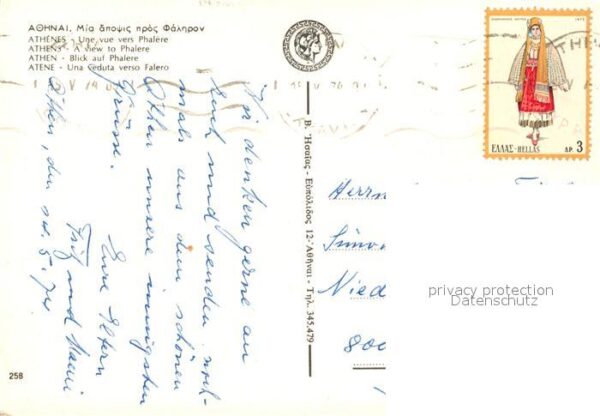 ΑΘΗΝΑΙ. Μία ἄποψις πρὸς Φάληρον
ATHÈNES - Une vue vers Phalère
ATHENS - A view to Phalere
ATHEN - Blick auf Phalere
ATENE - Una veduta verso Falero
Wir denken gerne an
Euch und senden noch-
mals aus dem schönen
Athen unsere innigsten
Grüsse.
Eure Eltern
Fritz und
Athen, den
5. 74
258
Β. Ἡσαΐας - Εὐπόλιδος 12-Ἀθῆναι - Τηλ. 345.479
ΕΛΛΑΣ-HELLAS ΔΡ. 3
Herrn
Nied
800
privacy protection
Datenschutz